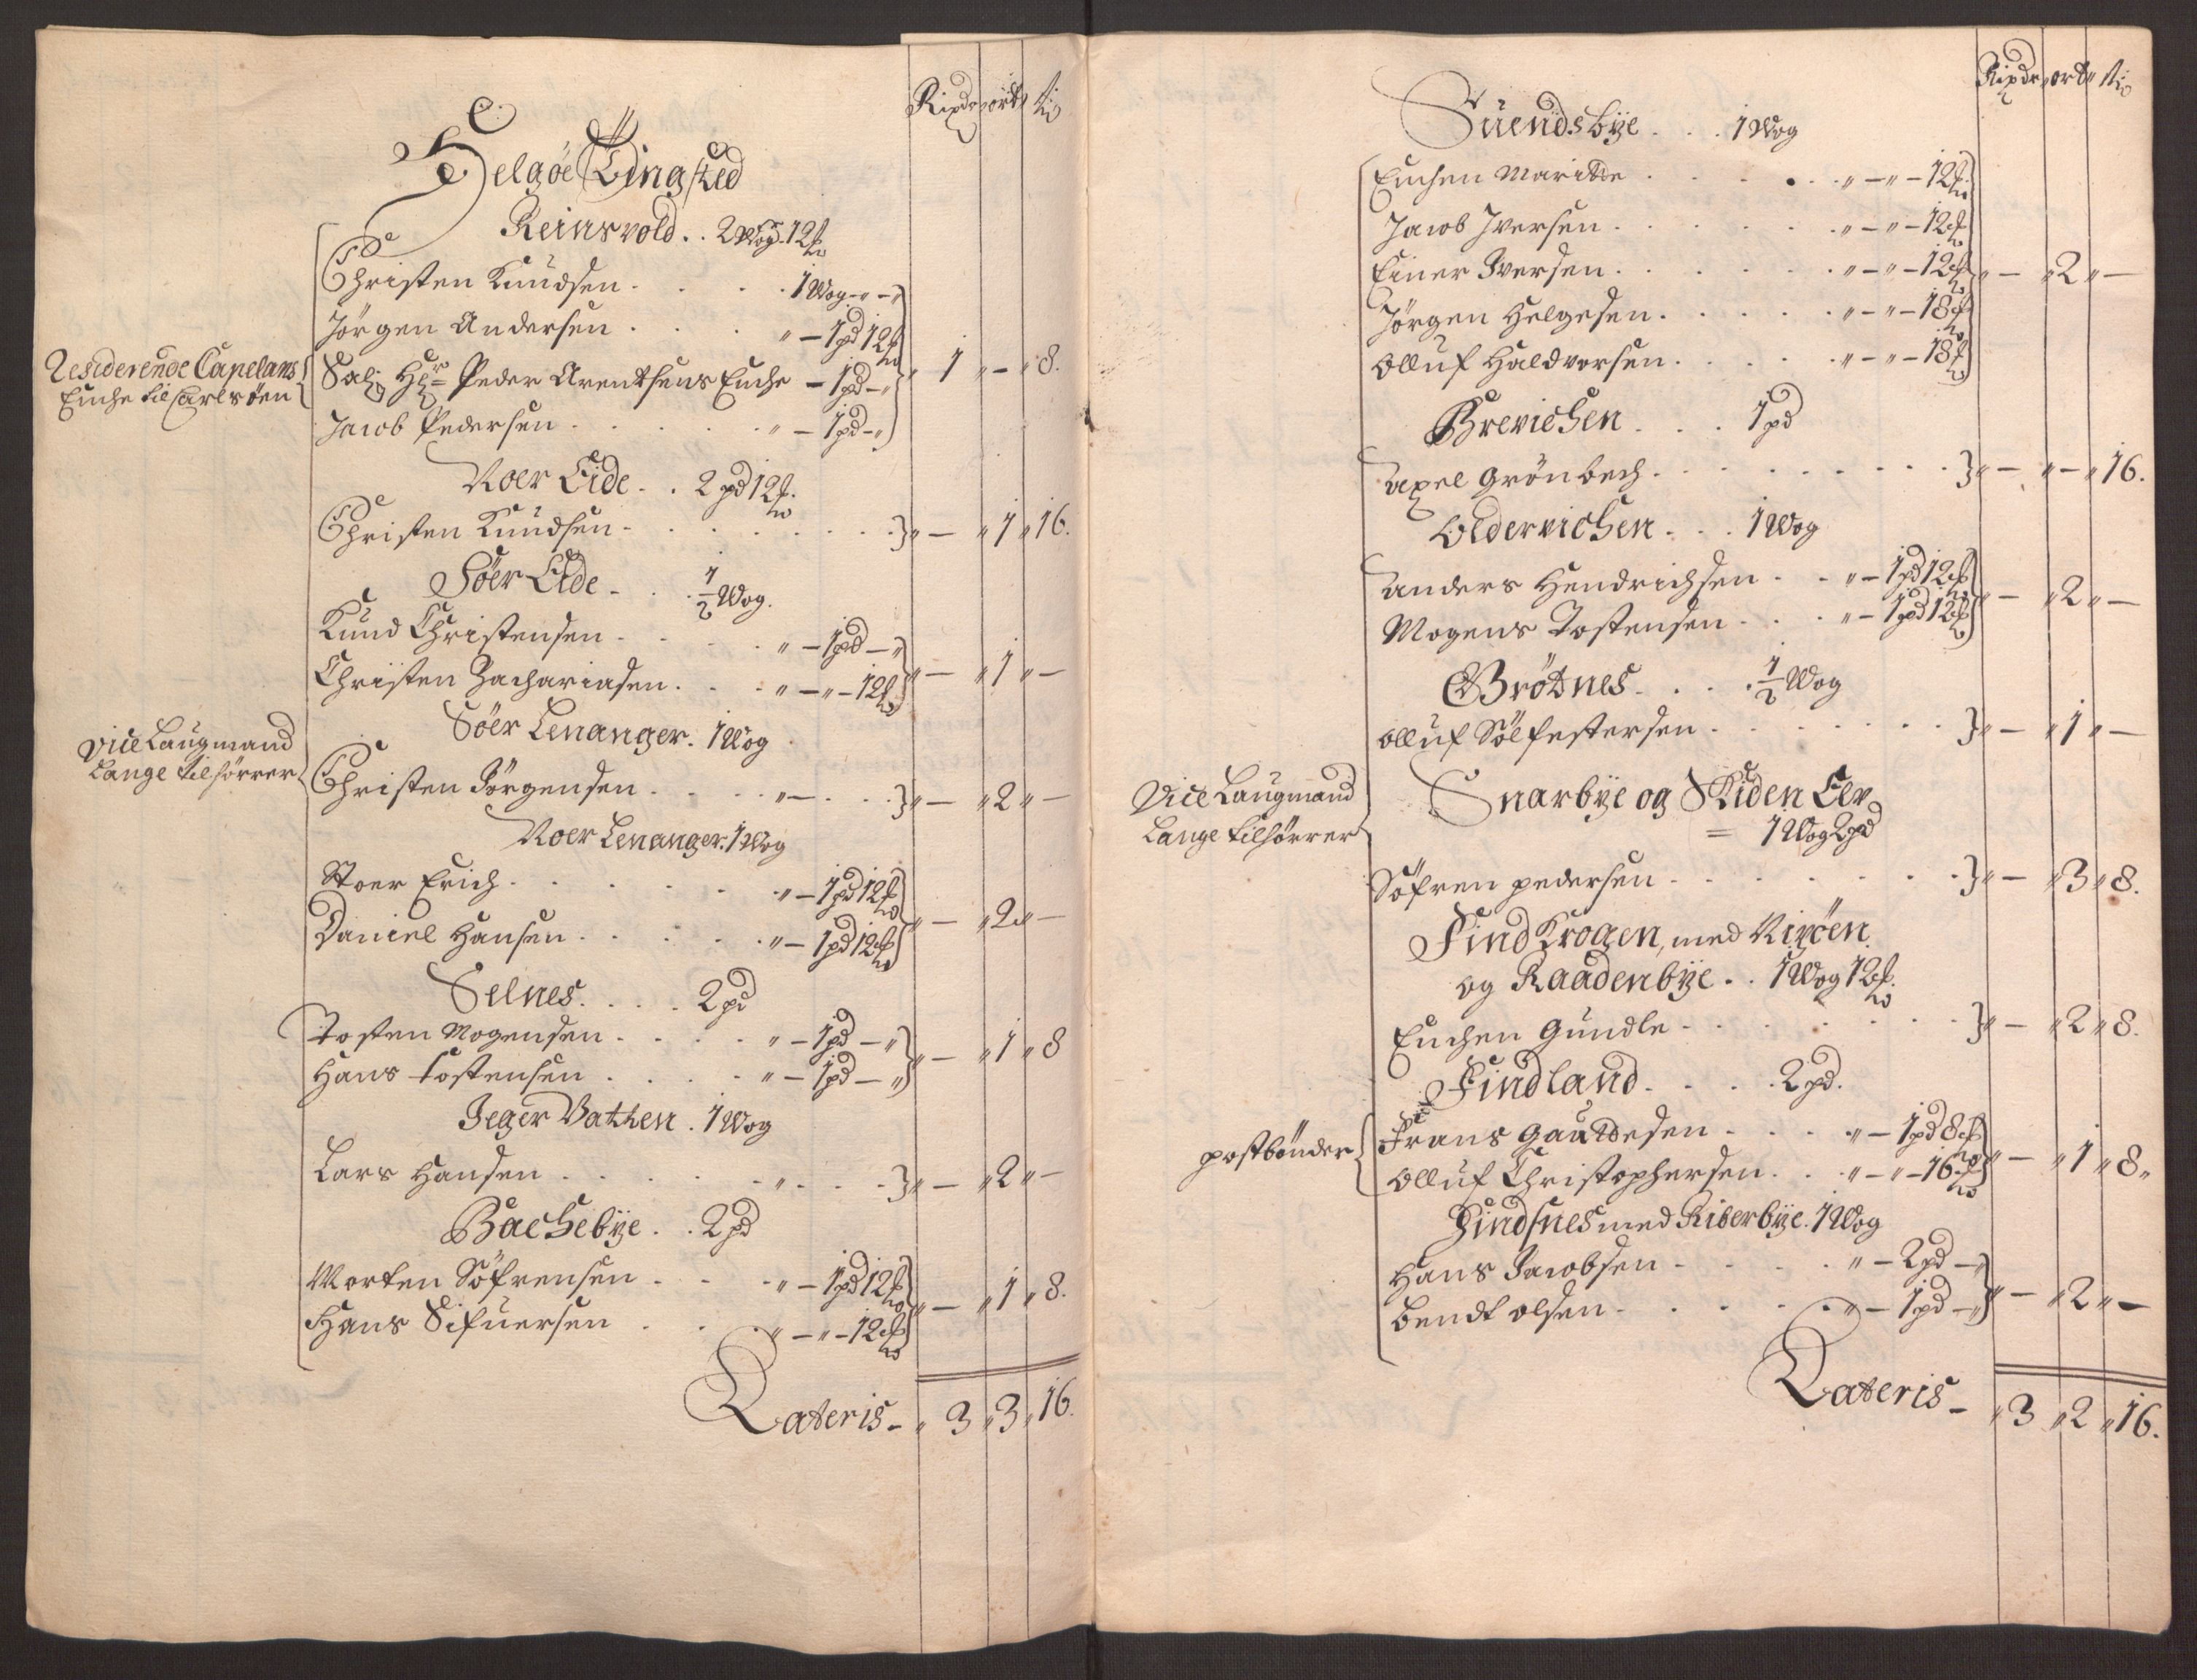 Rixdr ort ß
Helgöe Tingsted
Reinsvold . . 2 Wog. 12 ℔
Christen Knudsen . . . 1 Wog - " - "
Jörgen Andersen . . . " - 1 pd 12 ℔
Residerende Capelans
Enche til Carlsöen
Sal: Hr Peder Arentsens Enche - 1 pd - " 1 " - " 8.
Jacob Pedersen . . . " - 1 pd - "
Noer Eide . . 2 pd 12 ℔.
Christen Knudsen . . . } " - " 1 " 16.
Söer Eide - . . 1/2 Wog.
Knud Christensen . . . " - 1 pd - "
Christen Zachariasen . . . " - " - 12 ℔ " - " 1 " -
Söer Lenanger. 1 Wog
Vice Laugmand
Lange tilhörrer
Christen Jörgensen . . . " - . . } " - " 2 " -
Noer Lenanger. 1 Wog
Stoer Erich . . . " - 1 pd 12 ℔
Daniel Hansen . . . " - 1 pd 12 ℔ " - " 2 " -
Selnes . . . . 2 pd
Tosten Mogensen . . . " - 1 pd - "
Hans Tostensen . . . " - 1 pd - " " - " 1 " 8
Jeger Vatthen . 1 Wog
Lars Hansen . . . " . . . } " - " 2 " -
Bachebye . . 2 pd
Morten Söfrensen . . . " - 1 pd 12 ℔
Hans Sifuersen . . . " - " - 12 ℔ " - " 1 " 8.
Lateris - " 3 " 3 " 16.
Rixdr ort ß
Suendsbye . . . 1 Wog
Enchen Maritte . . . " - " - 12 ℔
Jacob Iversen . . . " - " - 12 ℔
Einer Iversen . . . " - " - 12 ℔ " - " 2 " -
Jörgen Helgesen . . . " - " - 18 ℔
Olluf Haldvorsen . . . " - " - 18 ℔
Brevichen . . . 1 pd
Axel Grönbech . . . } " - " - " 16.
Oldervichen . . . 1 Wog
Anders Hendrichsen . . " - 1 pd 12 ℔
Mogens Tostensen . . . " - 1 pd 12 ℔ " - " 2 " -
Grötnes . . . 1/2 Wog
Olluf Sölfestersen . . . } " - " 1 " -
Vice Laugmand
Lange tilhörrer
Snarbye og Skiden Elv
= 1 Wog 2 pd
Söfren Pedersen . . . } " - " 3 " 8.
Find Krogen, med Nipöen
og Raadenbye . . 1 Wog 12 ℔.
Enchen Gundle . . . } " - " 2 " 8.
Findland . . . . 2 pd.
postbönder
Frans Gauttesen . . . " - 1 pd 8 ℔
Olluf Christophersen . . . " - " - 16 ℔ " - " 1 " 8 "
Findsnes med Riberbye. 1 Wog
Hans Jacobsen . . . " - 2 pd - "
Bendt Olsen . . . " - 1 pd - " " - " 2 " -
Lateris - " 3 " 2 " 16.